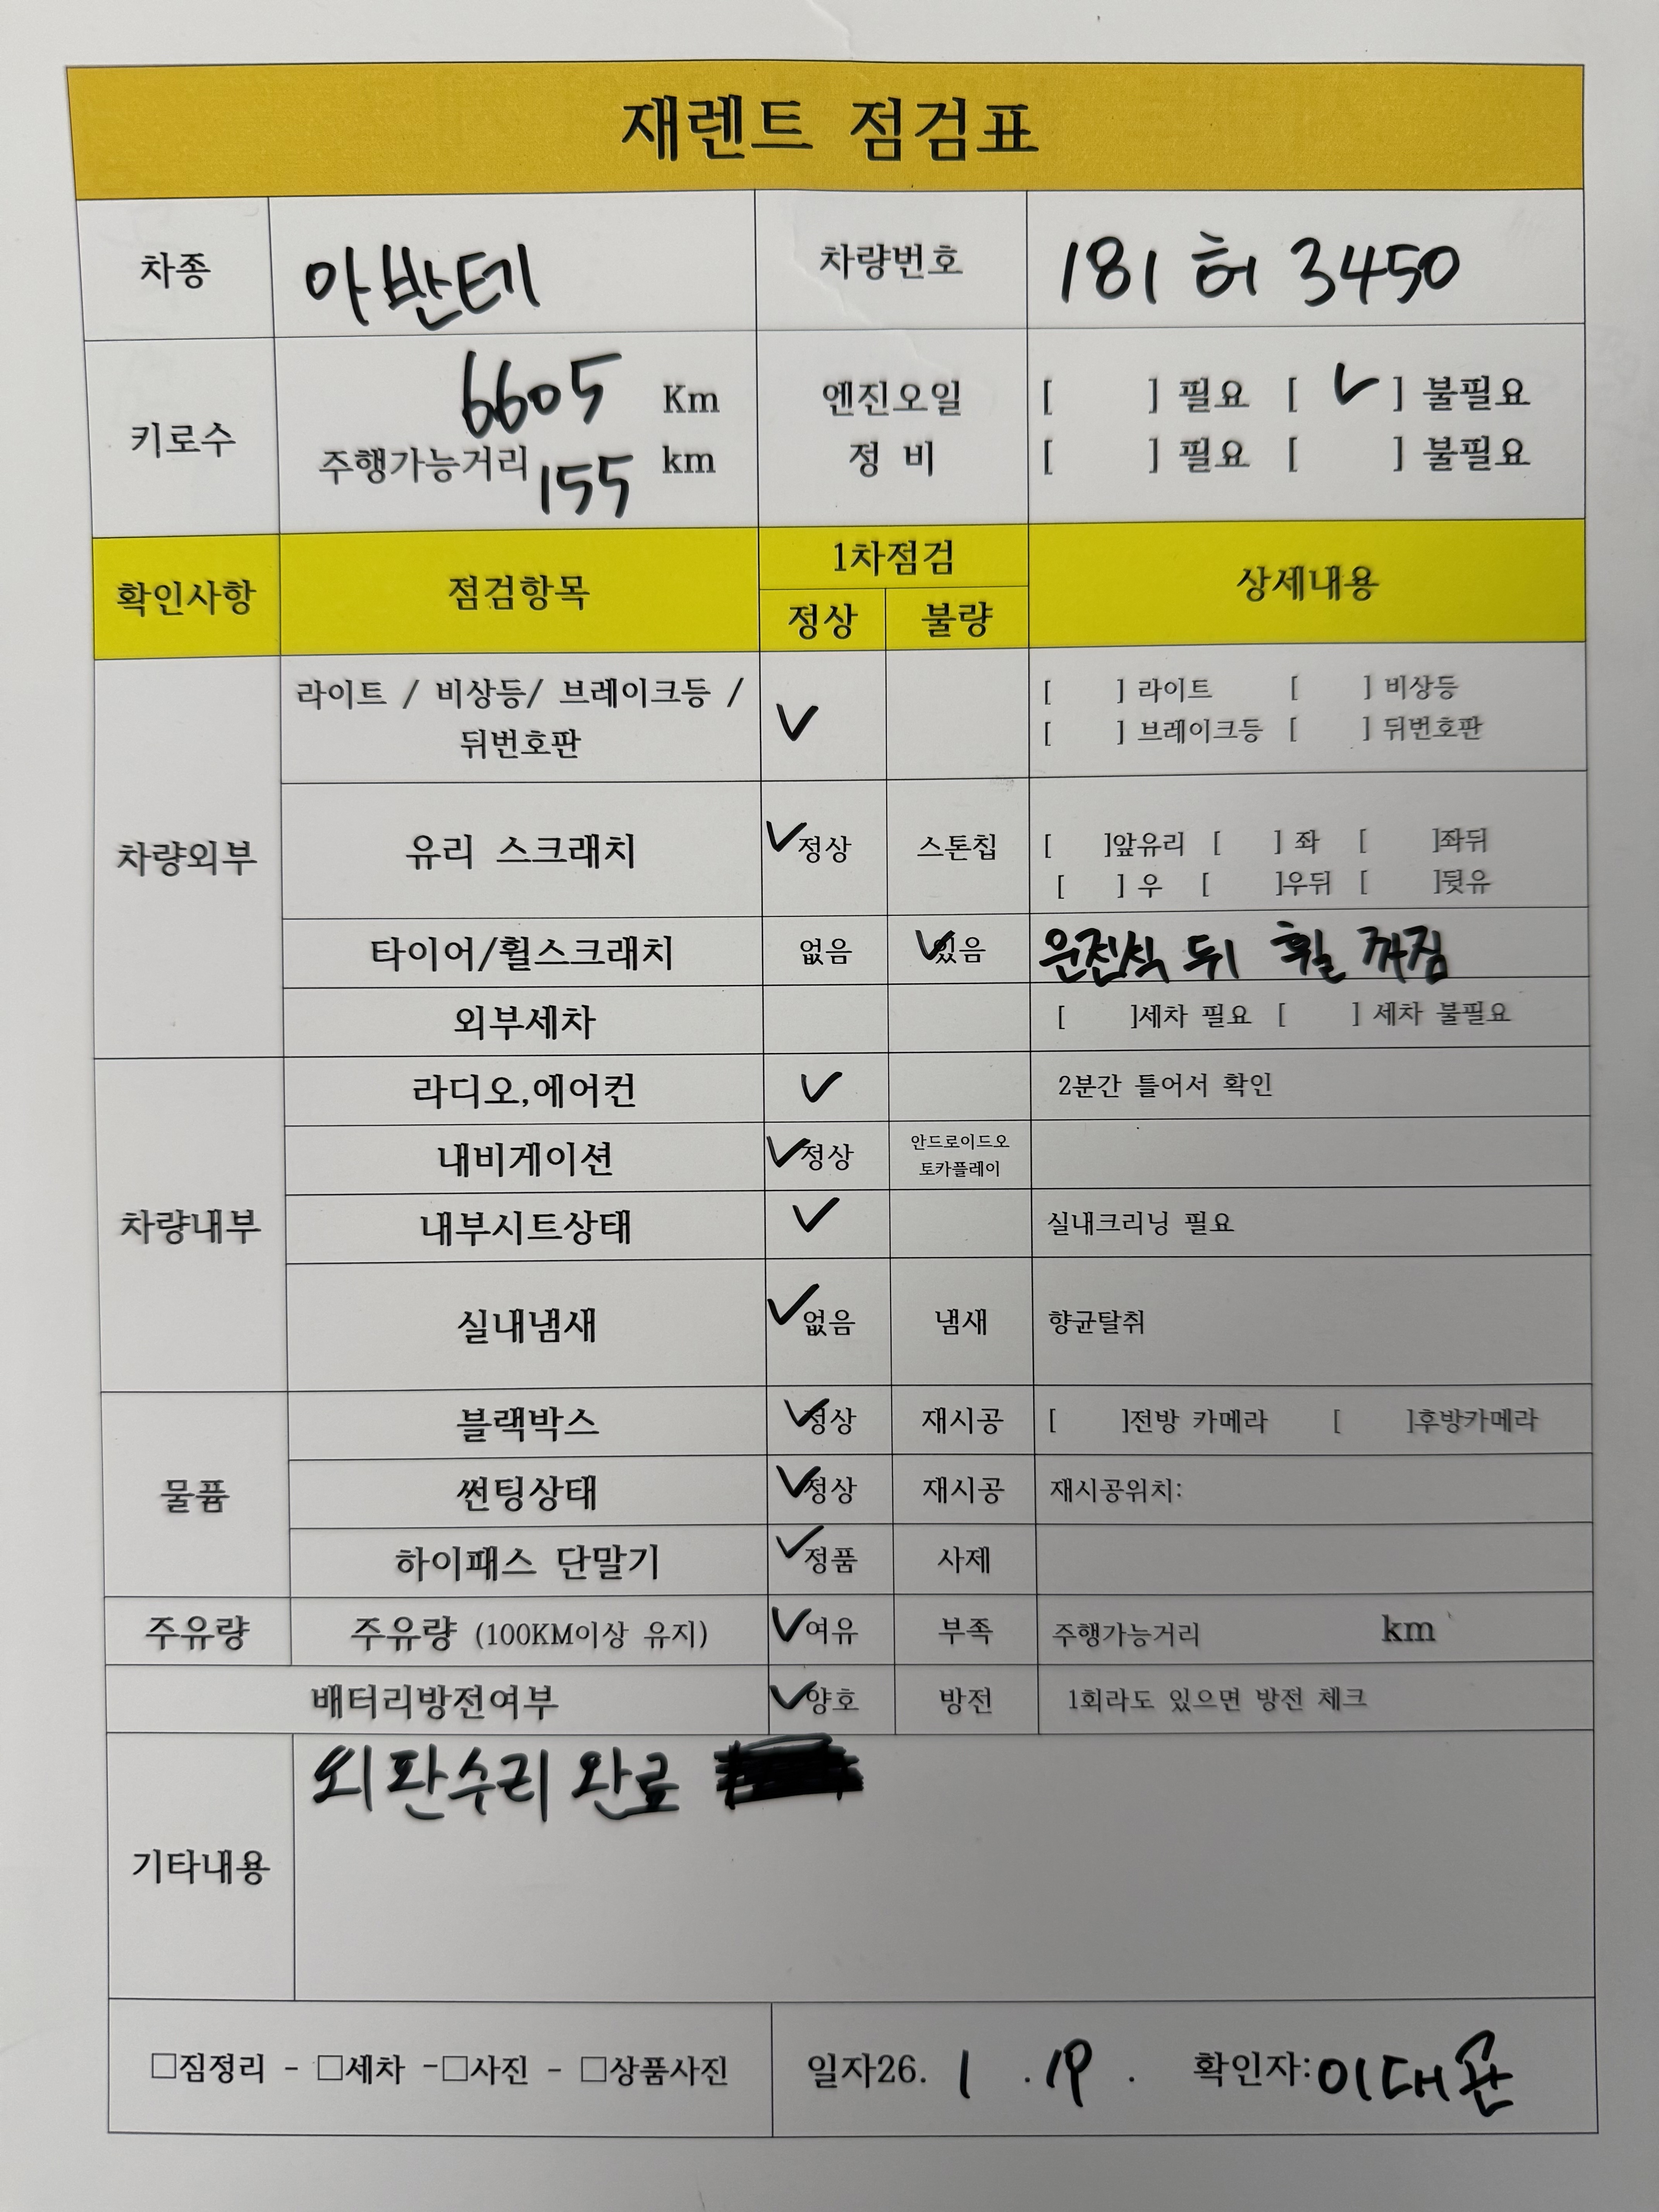 재렌트 점검표
차종 아반떼 차량번호 181 허 3450
키로수 6605 Km 엔진오일 [ ] 필요 [ ✓ ] 불필요
주행가능거리 155 km 정 비 [ ] 필요 [ ] 불필요
확인사항 점검항목 1차점검 상세내용
정상 불량
차량외부
라이트 / 비상등/ 브레이크등 / ✓ [ ] 라이트 [ ] 비상등
뒤번호판 [ ] 브레이크등 [ ] 뒤번호판
유리 스크래치 ✓정상 스톤칩 [ ]앞유리 [ ] 좌 [ ]좌뒤
[ ] 우 [ ]우뒤 [ ]뒷유
타이어/휠스크래치 없음 ✓있음 운전석 뒤 휠 까짐
외부세차 [ ]세차 필요 [ ] 세차 불필요
차량내부
라디오,에어컨 ✓ 2분간 틀어서 확인
내비게이션 ✓정상 안드로이드오
토카플레이
내부시트상태 ✓ 실내크리닝 필요
실내냄새 ✓없음 냄새 향균탈취
물품
블랙박스 ✓정상 재시공 [ ]전방 카메라 [ ]후방카메라
썬팅상태 ✓정상 재시공 재시공위치:
하이패스 단말기 ✓정품 사제
주유량 주유량 (100KM이상 유지) ✓여유 부족 주행가능거리 km
배터리방전여부 ✓양호 방전 1회라도 있으면 방전 체크
기타내용 외판수리 완료
□짐정리 - □세차 -□사진 - □상품사진 일자26. 1 . 19 . 확인자:이대